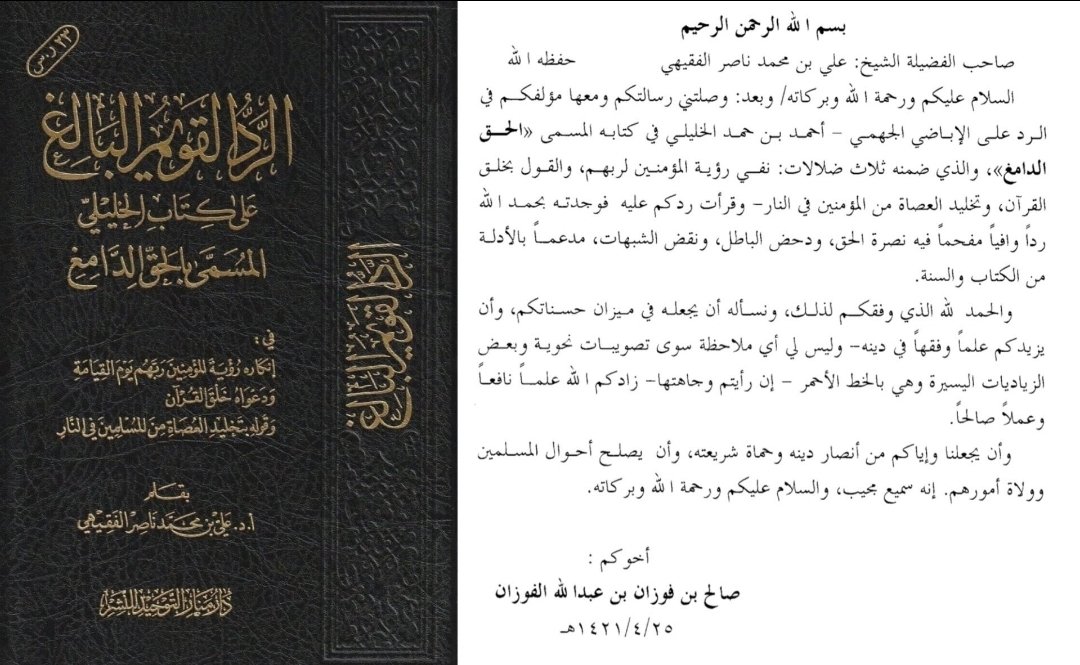 ٣٣ ر.س
الرد القويم البالغ
على كتاب الخليلي
المسمى بالحق الدامغ
في:
إنكاره رؤية المؤمنين ربهم يوم القيامة
ودعواه خلق القرآن
وقوله بتخليد العصاة من المسلمين في النار
بقلم
أ.د. علي بن محمد ناصر الفقيهي
دار منار التوحيد للنشر
الرد القويم البالغ
بسم الله الرحمن الرحيم
صاحب الفضيلة الشيخ: علي بن محمد ناصر الفقيهي حفظه الله
السلام عليكم ورحمة الله وبركاته/ وبعد: وصلتني رسالتكم ومعها مؤلفكم في
الرد على الإباضي الجهمي – أحمد بن حمد الخليلي في كتابه المسمى «الحق
الدامغ»، والذي ضمنه ثلاث ضلالات: نفي رؤية المؤمنين لربهم، والقول بخلق
القرآن، وتخليد العصاة من المؤمنين في النار– وقرأت ردكم عليه فوجدته بحمد الله
رداً وافياً مفحماً فيه نصرة الحق، ودحض الباطل، ونقض الشبهات، مدعماً بالأدلة
من الكتاب والسنة.
والحمد لله الذي وفقكم لذلك، ونسأله أن يجعله في ميزان حسناتكم، وأن
يزيدكم علماً وفقهاً في دينه– وليس لي أي ملاحظة سوى تصويبات نحوية وبعض
الزياديات اليسيرة وهي بالخط الأحمر – إن رأيتم وجاهتها– زادكم الله علماً نافعاً
وعملاً صالحاً.
وأن يجعلنا وإياكم من أنصار دينه وحماة شريعته، وأن يصلح أحوال المسلمين
وولاة أمورهم. إنه سميع مجيب، والسلام عليكم ورحمة الله وبركاته.
أخوكم :
صالح بن فوزان بن عبدالله الفوزان
١٤٢١/٤/٢٥هـ